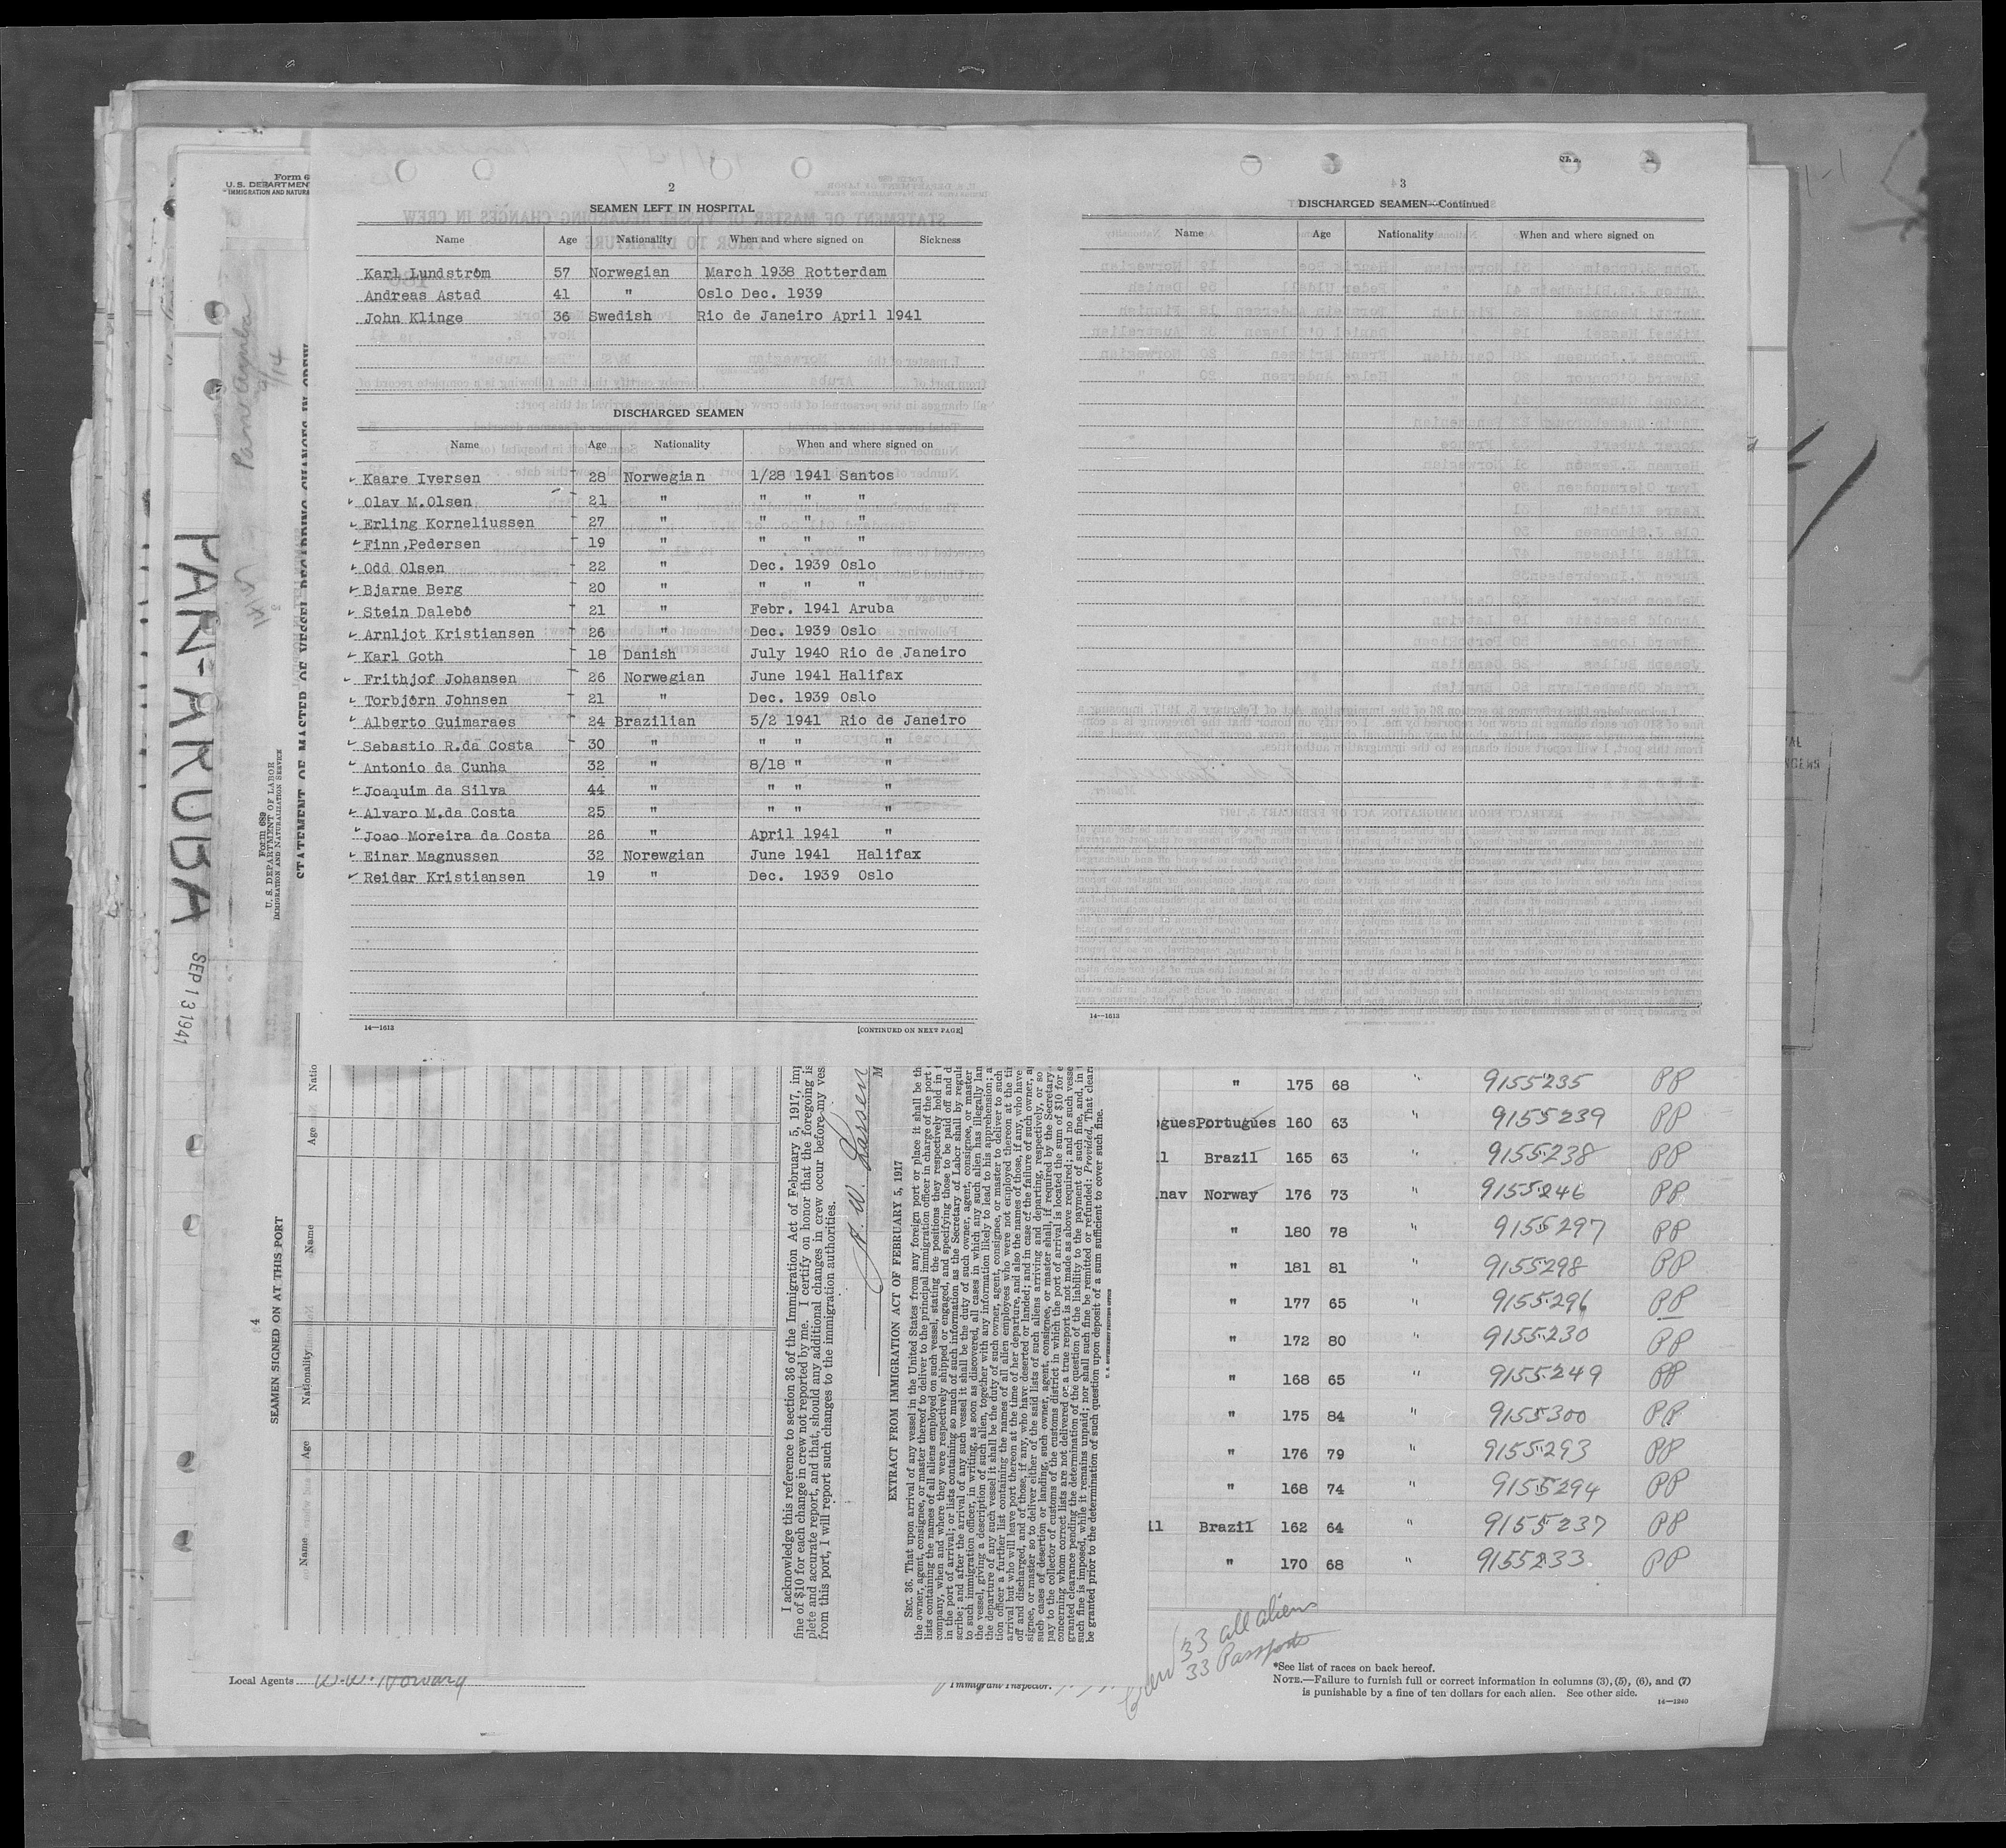 Form 6
U. S. DEPARTMENT
IMMIGRATION AND NATURA
2
SEAMEN LEFT IN HOSPITAL
Name Age Nationality When and where signed on Sickness
Karl Lundström 57 Norwegian March 1938 Rotterdam
Andreas Astad 41 " Oslo Dec. 1939
John Klinge 36 Swedish Rio de Janeiro April 1941
DISCHARGED SEAMEN
Name Age Nationality When and where signed on
Kaare Iversen 28 Norwegian 1/28 1941 Santos
Olav M.Olsen 21 " " " "
Erling Korneliussen 27 " " " "
Finn,Pedersen 19 " " " "
Odd Olsen 22 " Dec. 1939 Oslo
Bjarne Berg 20 " " " "
Stein Dalebö 21 " Febr. 1941 Aruba
Arnljot Kristiansen 26 " Dec. 1939 Oslo
Karl Goth 18 Danish July 1940 Rio de Janeiro
Frithjof Johansen 26 Norwegian June 1941 Halifax
Torbjörn Johnsen 21 " Dec. 1939 Oslo
Alberto Guimaraes 24 Brazilian 5/2 1941 Rio de Janeiro
Sebastio R.da Costa 30 " " " "
Antonio da Cunha 32 " 8/18 " "
Joaquim da Silva 44 " " " "
Alvaro M.da Costa 25 " " " "
Joao Moreira da Costa 26 " April 1941 "
Einar Magnussen 32 Norewgian June 1941 Halifax
Reidar Kristiansen 19 " Dec. 1939 Oslo
14—1613 [CONTINUED ON NEXT PAGE]
3
DISCHARGED SEAMEN—Continued
Name Age Nationality When and where signed on
14—1613
PAN-ARUBA
SEP 13 1941
Form 689
U. S. DEPARTMENT OF LABOR
IMMIGRATION AND NATURALIZATION SERVICE
STATEMENT OF MASTER OF VESSEL REGARDING CHANGES IN CREW
4
SEAMEN SIGNED ON AT THIS PORT
Name Age Nationality Name Age Natio
I acknowledge this reference to section 36 of the Immigration Act of February 5, 1917, imp
fine of $10 for each change in crew not reported by me. I certify on honor that the foregoing is
plete and accurate report, and that, should any additional changes in crew occur before my ves
from this port, I will report such changes to the immigration authorities.
M
EXTRACT FROM IMMIGRATION ACT OF FEBRUARY 5, 1917
SEC. 36. That upon arrival of any vessel in the United States from any foreign port or place it shall be th
the owner, agent, consignee, or master thereof to deliver to the principal immigration officer in charge of the port
lists containing the names of all aliens employed on such vessel, stating the positions they respectively hold in
company, when and where they were respectively shipped or engaged, and specifying those to be paid off and d
in the port of arrival; or lists containing so much of such information as the Secretary of Labor shall by regula
scribe; and after the arrival of any such vessel it shall be the duty of such owner, agent, consignee, or master
to such immigration officer, in writing, as soon as discovered, all cases in which any such alien has illegally lan
the vessel, giving a description of such alien, together with any information likely to lead to his apprehension; a
the departure of any such vessel it shall be the duty of such owner, agent, consignee, or master to deliver to such
tion officer a further list containing the names of all alien employees who were not employed thereon at the ti
arrival but who will leave port thereon at the time of her departure, and also the names of those, if any, who have
off and discharged, and of those, if any, who have deserted or landed; and in case of the failure of such owner, a
signee, or master so to deliver either of the said lists of such aliens arriving and departing, respectively, or so
such cases of desertion or landing, such owner, agent, consignee, or master shall, if required by the Secretary
pay to the collector of customs of the customs district in which the port of arrival is located the sum of $10 for e
concerning whom correct lists are not delivered or a true report is not made as above required; and no such vesse
granted clearance pending the determination of the question of the liability to the payment of such fine, and, in
such fine is imposed, while it remains unpaid; nor shall such fine be remitted or refunded: Provided, That clear
be granted prior to the determination of such question upon deposit of a sum sufficient to cover such fine.
" 175 68 " 9155235 PP
gues Portugues 160 63 " 9155239 PP
il Brazil 165 63 " 9155238 PP
nav Norway 176 73 " 9155246 PP
" 180 78 " 9155297 PP
" 181 81 " 9155298 PP
" 177 65 " 9155296 PP
" 172 80 " 9155230 PP
" 168 65 " 9155249 PP
" 175 84 " 9155300 PP
" 176 79 " 9155293 PP
" 168 74 " 9155294 PP
il Brazil 162 64 " 9155237 PP
" 170 68 " 9155233 PP
Crew 33 all aliens
33 Passports
Local Agents
Immigrant Inspector.
*See list of races on back hereof.
NOTE.—Failure to furnish full or correct information in columns (3), (5), (6), and (7)
is punishable by a fine of ten dollars for each alien. See other side.
14—1240